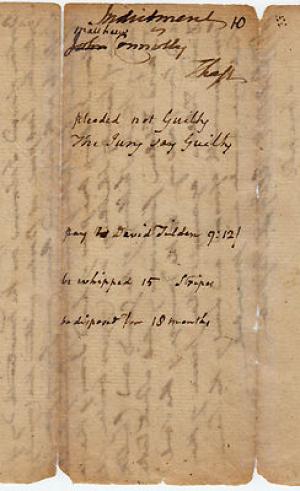 Indictment 10
vs
Matthew
John Connolly
Theft
pleaded not Guilty
The Jury say Guilty
pay to David Tilden 9:12/
be whipped 15 Stripes
to dispose for 18 months